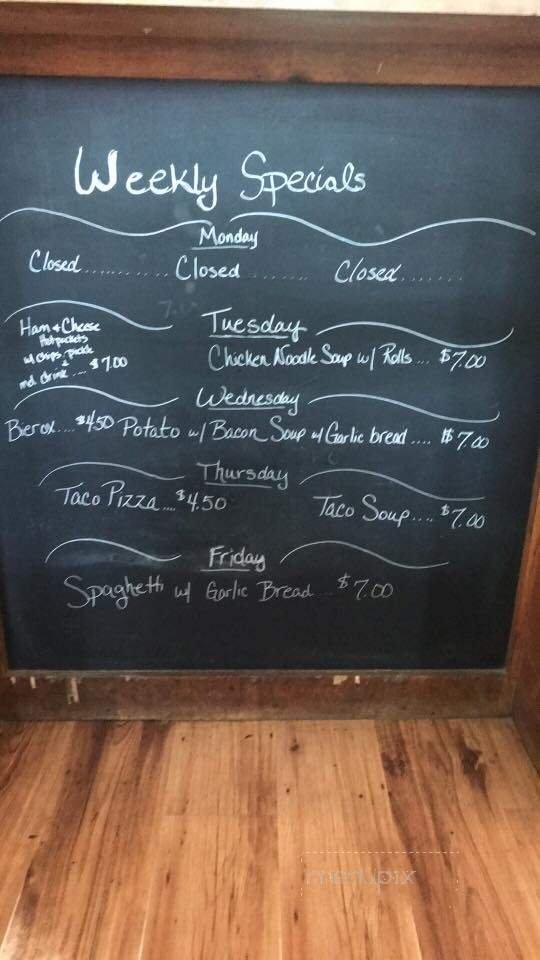 Weekly Specials
Monday
Closed.......... Closed ........ Closed.......
Tuesday
Ham & Cheese
Hotpockets
w/ chips, pickle
med. drink .... $7.00
Chicken Noodle Soup w/ Rolls ... $7.00
Wednesday
Bierox.... $4.50 Potato w/ Bacon Soup w/ Garlic bread .... $7.00
Thursday
Taco Pizza ... $4.50
Taco Soup.... $7.00
Friday
Spaghetti w/ Garlic Bread ... $7.00
menupix